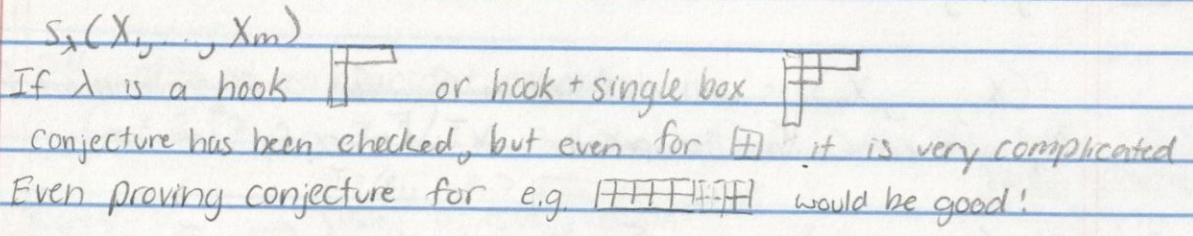 s_λ(X_1, ..., X_m)
If λ is a hook or hook + single box
conjecture has been checked, but even for it is very complicated
Even proving conjecture for e.g. would be good!